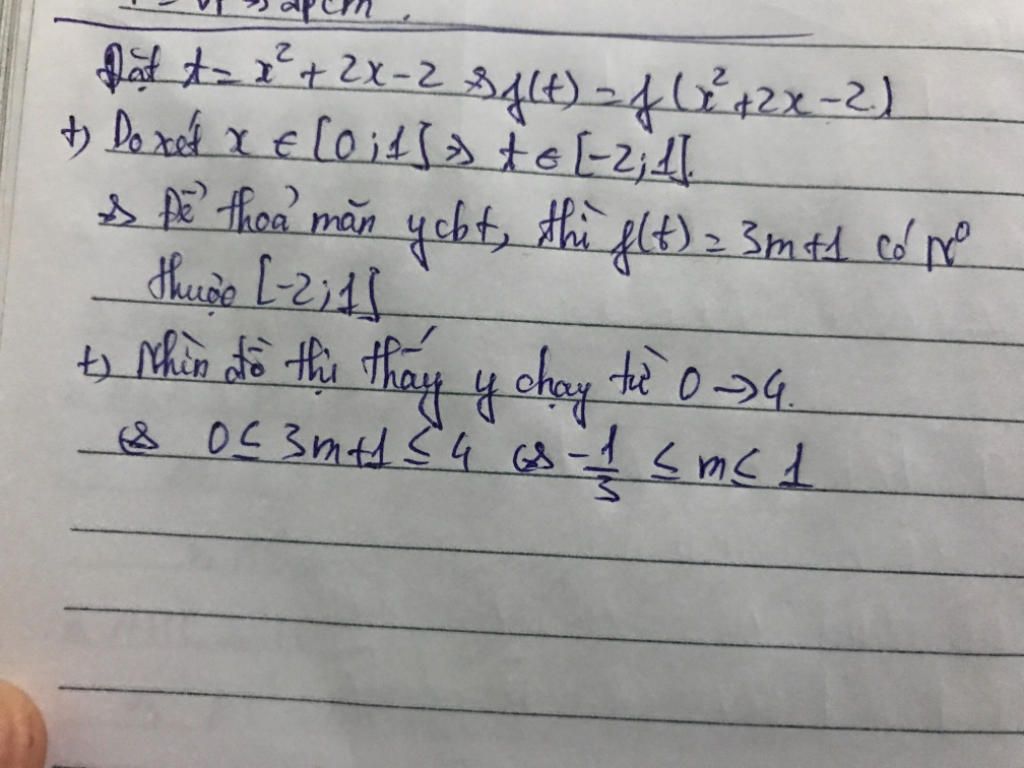 ⇒ đpcm.
Đặt t = x² + 2x - 2 ⇒ f(t) = f(x² + 2x - 2)
+) Do xét x ∈ [0;1] ⇒ t ∈ [-2;1].
⇒ Để thoả mãn ycbt, thì f(t) = 3m+1 có No
thuộc [-2;1]
+) Nhìn đồ thị thấy y chạy từ 0 → 4.
⇔ 0 ≤ 3m+1 ≤ 4 ⇔ -1/3 ≤ m ≤ 1